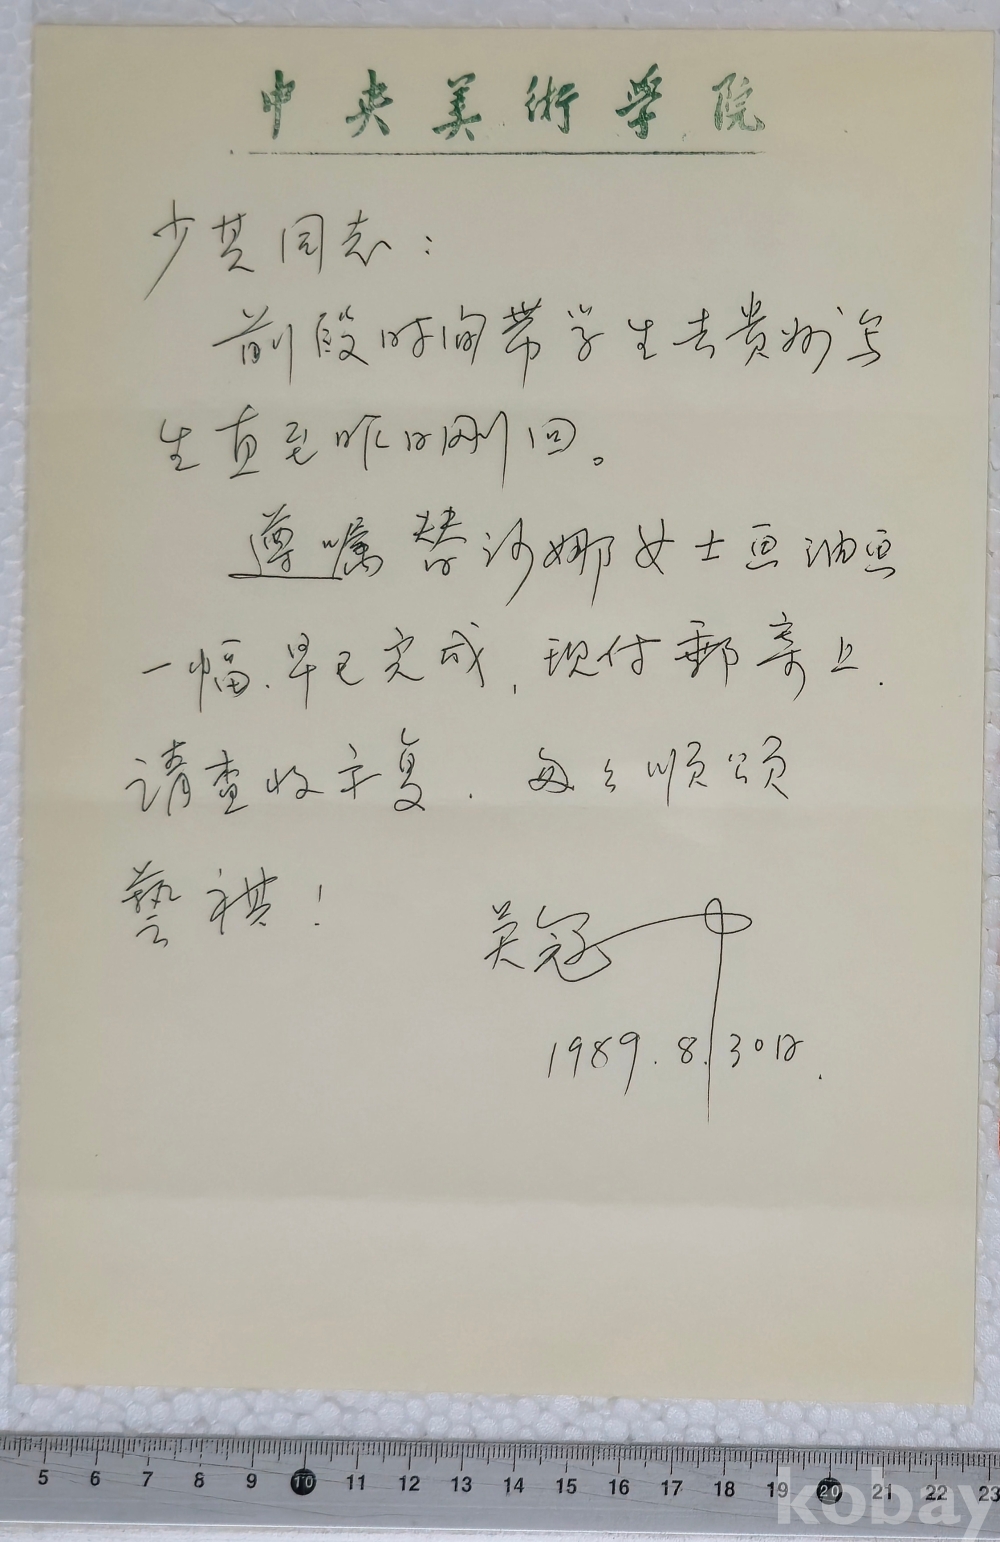 中央美術学院
少其同志：
前段时间带学生去贵州写
生直至昨日刚回。
遵嘱替沙娜女士画油画
一幅.早已完成,现付郵寄上.
请查收示复.匆匆顺颂
藝祺！
吴冠中
1989.8.30日.
5 6 7 8 9 10 11 12 13 14 15 16 17 18 19 20 21 22 23
kobay